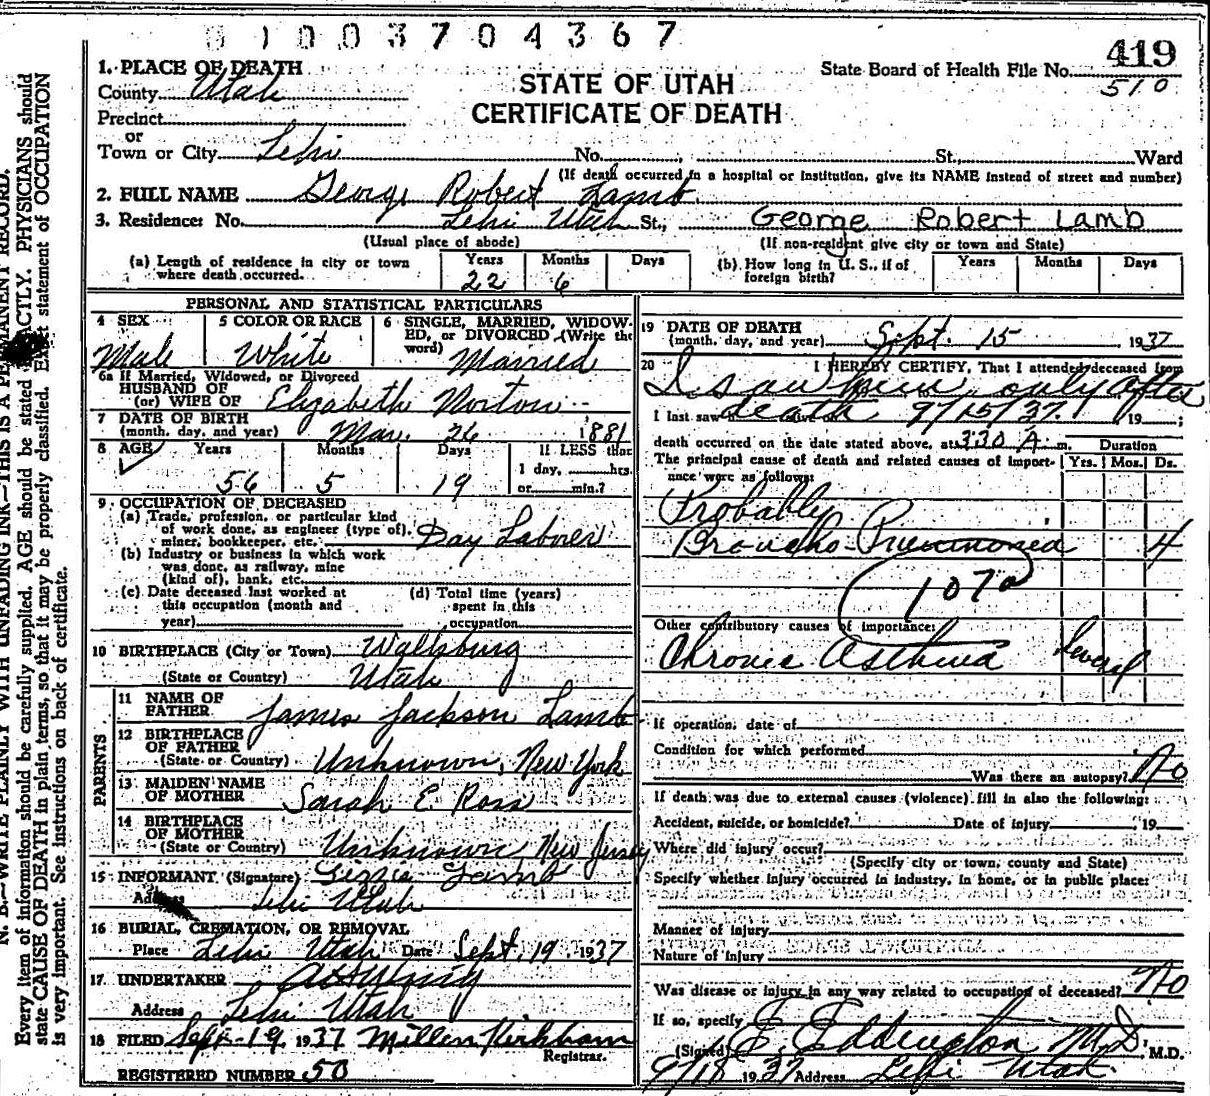 8100370 4367
419
510
State Board of Health File No.
STATE OF UTAH
CERTIFICATE OF DEATH
1. PLACE OF DEATH
County Utah
Precinct
or
Town or City Lehi No. , St., Ward
(If death occurred in a hospital or institution, give its NAME instead of street and number)
2. FULL NAME George Robert Lamb
3. Residence: No. Lehi Utah St., George Robert Lamb
(Usual place of abode) (If non-resident give city or town and State)
(a) Length of residence in city or town where death occurred. Years 22 Months 6 Days
(b) How long in U. S., if of foreign birth? Years Months Days
PERSONAL AND STATISTICAL PARTICULARS
4 SEX Male
5 COLOR OR RACE White
6 SINGLE, MARRIED, WIDOWED, or DIVORCED (Write the word) Married
6a If Married, Widowed, or Divorced
HUSBAND OF
(or) WIFE OF Elizabeth Norton
7 DATE OF BIRTH
(month, day, and year) Mar. 26 1881
8 AGE Years 56 Months 5 Days 19 If LESS than 1 day, hrs. or min.?
9 OCCUPATION OF DECEASED
(a) Trade, profession, or particular kind of work done, as engineer (type of), miner, bookkeeper, etc. Day Laborer
(b) Industry or business in which work was done, as railway, mine (kind of), bank, etc.
(c) Date deceased last worked at this occupation (month and year)
(d) Total time (years) spent in this occupation
10 BIRTHPLACE (City or Town) Wallsburg
(State or Country) Utah
PARENTS
11 NAME OF FATHER James Jackson Lamb
12 BIRTHPLACE OF FATHER
(State or Country) Unknown, New York
13 MAIDEN NAME OF MOTHER Sarah E Ross
14 BIRTHPLACE OF MOTHER
(State or Country) Unknown, New Jersey
15 INFORMANT (Signature) Lizzie Lamb
Address Lehi Utah
16 BURIAL, CREMATION, OR REMOVAL
Place Lehi Utah Date Sept. 19, 1937
17 UNDERTAKER
Address Lehi Utah
18 FILED Sept-19, 1937 Millen Kirkham
Registrar.
REGISTERED NUMBER 50
19 DATE OF DEATH
(month, day, and year) Sept. 15 1937
20 I HEREBY CERTIFY, That I attended deceased from
I saw him only after
I last saw death alive on 9/15/37. 19 ;
death occurred on the date stated above, at 3:30 A. m. Duration
The principal cause of death and related causes of importance were as follows: Yrs. Mos. Ds.
Probably
Broncho-Pneumonia 4
107a
Other contributory causes of importance:
Chronic Asthma Several
If operation, date of
Condition for which performed
Was there an autopsy? No
If death was due to external causes (violence) fill in also the following:
Accident, suicide, or homicide? Date of injury , 19
Where did injury occur?
(Specify city or town, county and State)
Specify whether injury occurred in industry, in home, or in public place:
Manner of injury
Nature of injury
Was disease or injury in any way related to occupation of deceased? No
If so, specify
(Signed) E. Eddington M.D. M.D.
9/18 1937 Address Lehi Utah.
N. B.—WRITE PLAINLY WITH UNFADING INK—THIS IS A PERMANENT RECORD.
Every item of information should be carefully supplied. AGE should be stated EXACTLY. PHYSICIANS should
state CAUSE OF DEATH in plain terms, so that it may be properly classified. Exact statement of OCCUPATION
is very important. See instructions on back of certificate.